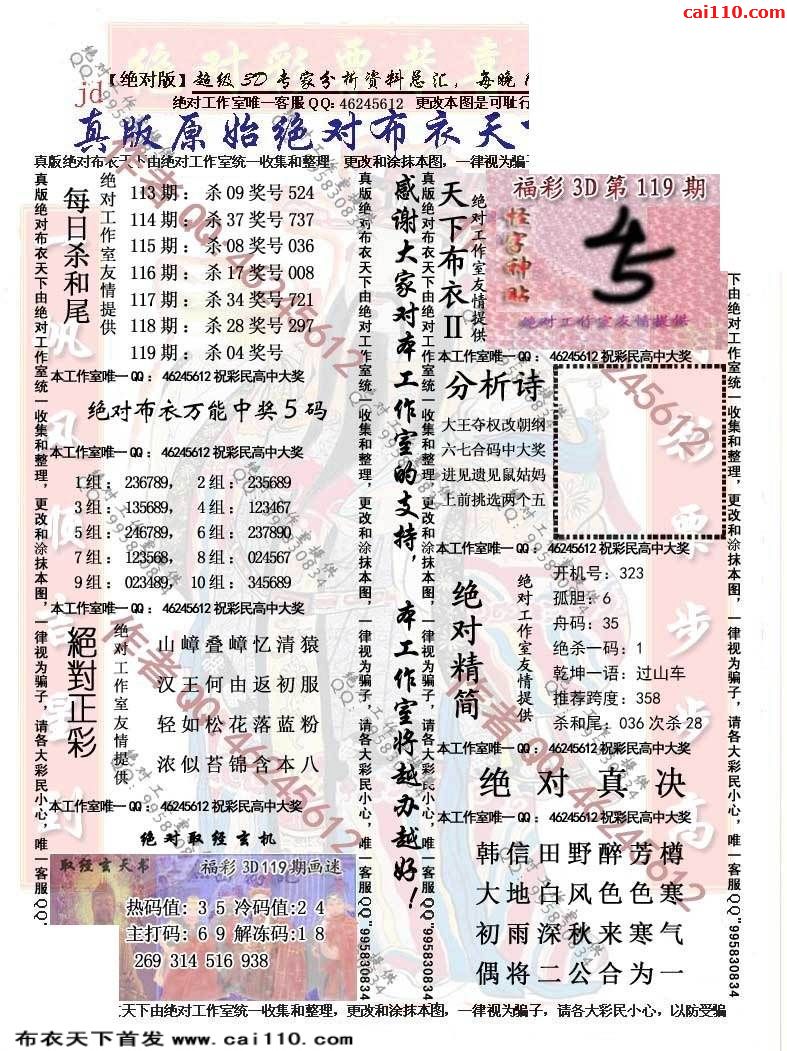 cai110.com
【绝对版】超级3D专家分析资料总汇，每晚
jd
绝对工作室唯一客服QQ：46245612 更改本图是可耻行
真版原始绝对布衣天
真版绝对布衣天下由绝对工作室统一收集和整理，更改和涂抹本图，一律视为骗
每日杀和尾
绝对工作室友情提供
113期：杀09奖号524
114期：杀37奖号737
115期：杀08奖号036
116期：杀17奖号008
117期：杀34奖号721
118期：杀28奖号297
119期：杀04奖号
本工作室唯一QQ：46245612祝彩民高中大奖
绝对布衣万能中奖5码
本工作室唯一QQ：46245612祝彩民高中大奖
1组：236789， 2组：235689
3组：135689， 4组：123467
5组：246789， 6组：237890
7组：123568， 8组：024567
9组：023489， 10组：345689
本工作室唯一QQ：46245612祝彩民高中大奖
絕對正彩
绝对工作室友情提供
山嶂叠嶂忆清猿
汉王何由返初服
轻如松花落蓝粉
浓似苔锦含本八
本工作室唯一QQ：46245612祝彩民高中大奖
绝对取经玄机
取经玄天书
福彩3D119期画谜
热码值：35冷码值：24
主打码：69解冻码：18
269 314 516 938
真版绝对布衣天下由绝对工作室统一收集和整理，更改和涂抹本图，一律视为骗子，请各大彩民小心，唯一客服QQ"995830834
感谢大家对本工作室的支持，本工作室将越办越好！
天下布衣II
绝对工作室友情提供
福彩3D第119期
怪字神贴
绝对工作室友情提供
本工作室唯一QQ：46245612祝彩民高中大奖
分析诗
大王夺权改朝纲
六七合码中大奖
进见遗见鼠姑妈
上前挑选两个五
本工作室唯一QQ：46245612祝彩民高中大奖
绝对精简
绝对工作室友情提供
开机号：323
孤胆：6
舟码：35
绝杀一码：1
乾坤一语：过山车
推荐跨度：358
杀和尾：036次杀28
本工作室唯一QQ：46245612祝彩民高中大奖
绝对真决
本工作室唯一QQ：46245612祝彩民高中大奖
韩信田野醉芳樽
大地白风色色寒
初雨深秋来寒气
偶将二公合为一
下由绝对工作室统一收集和整理，更改和涂抹本图，一律视为骗子，请各大彩民小心，唯一客服QQ"995830834
天下由绝对工作室统一收集和整理，更改和涂抹本图，一律视为骗子，请各大彩民小心，以防受骗
作者QQ:46245612
绝对工作室提供
QQ:995830834
布衣天下首发 www.cai110.com